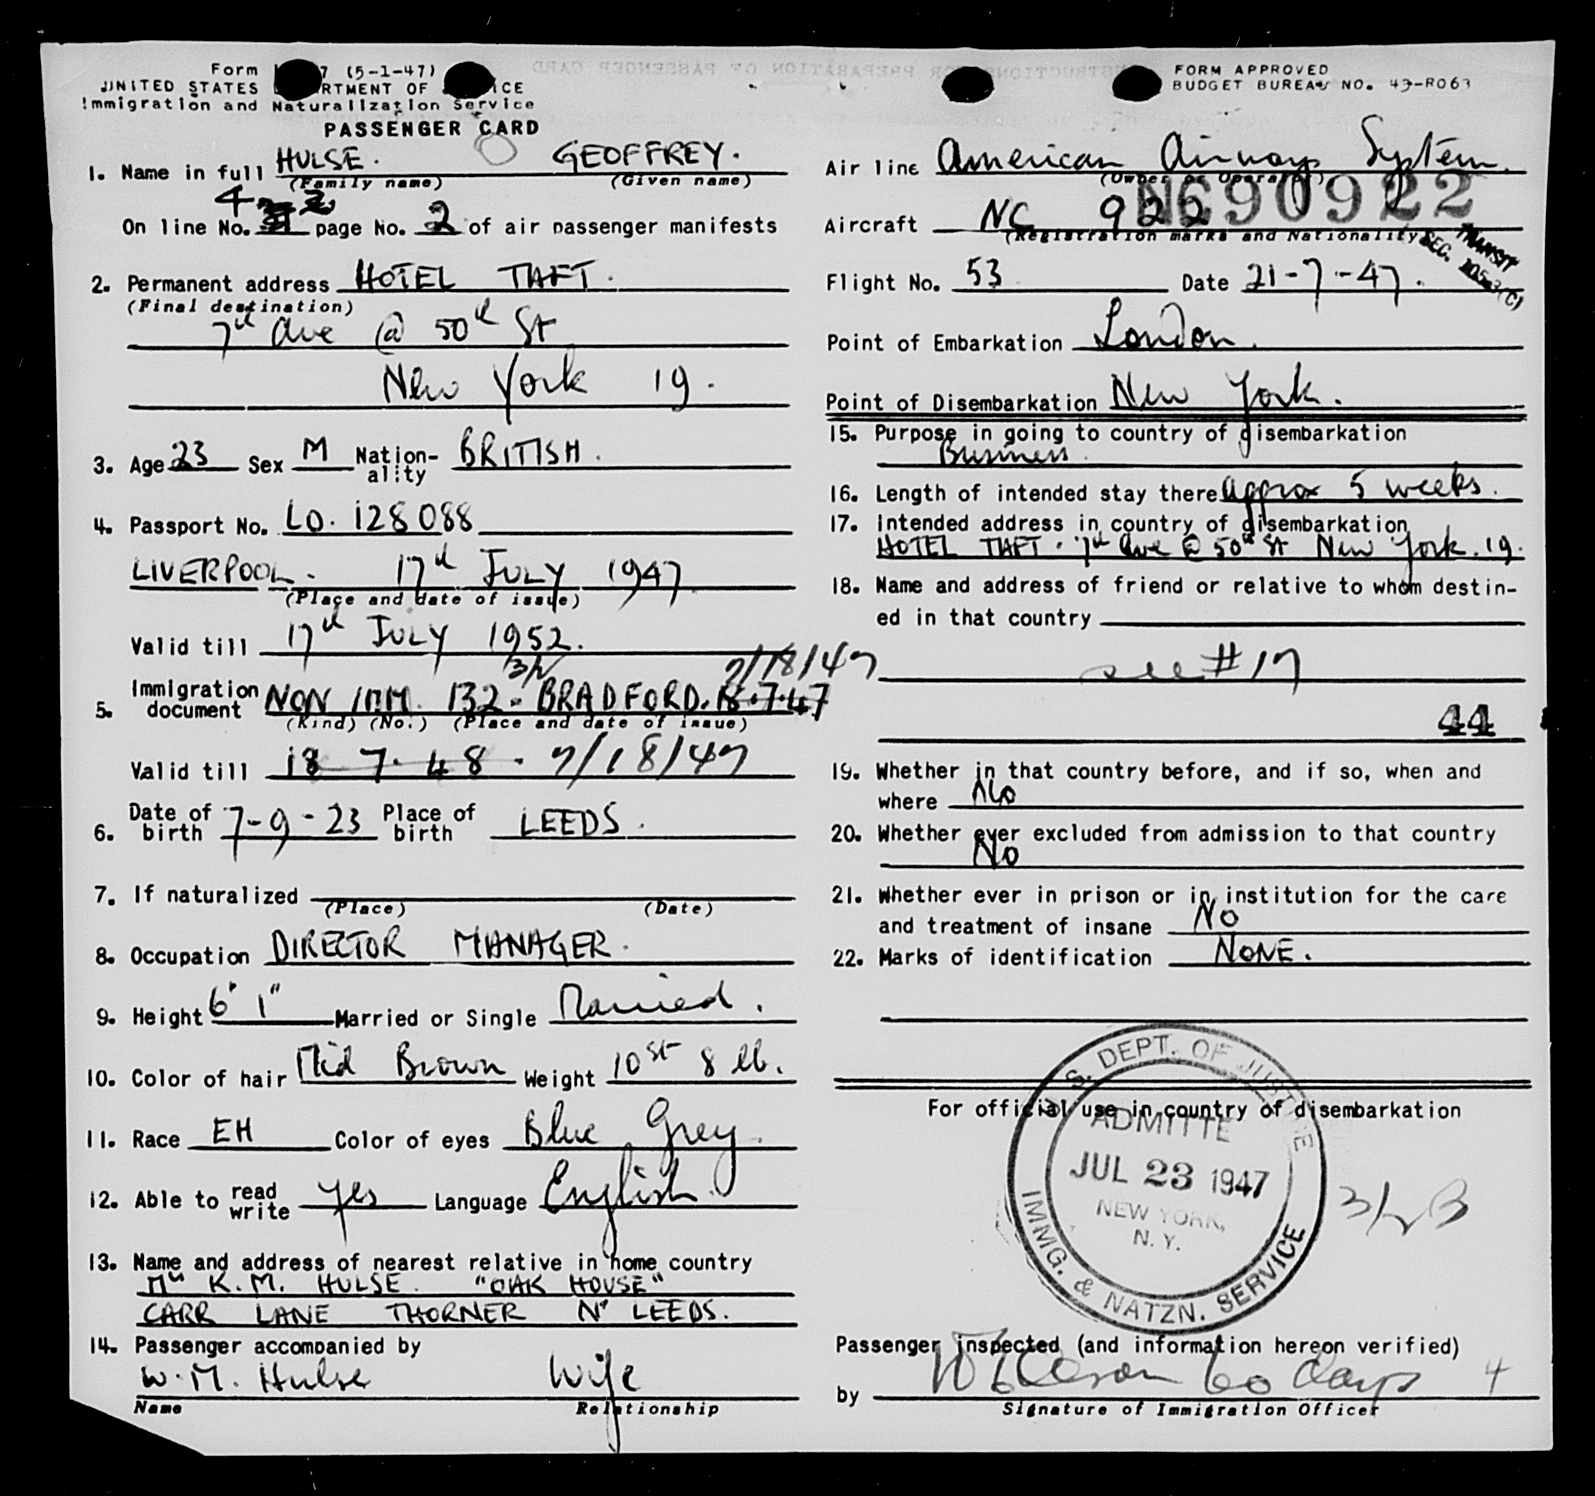 Form 7 (5-1-47)
UNITED STATES DEPARTMENT OF JUSTICE
Immigration and Naturalization Service
PASSENGER CARD
1. Name in full HULSE. GEOFFREY.
(Family name) (Given name)
On line No. 4 page No. 2 of air passenger manifests
2. Permanent address HOTEL TAFT.
(Final destination)
7th Ave @ 50th St
New York 19.
3. Age 23 Sex M Nation-ality BRITISH.
4. Passport No. LO. 128088
LIVERPOOL. 17th JULY 1947
(Place and date of issue)
Valid till 17th JULY 1952.
3/2 7/18/47
5. Immigration document NON IMM. 132 - BRADFORD. 18.7.47
(Kind) (No.) (Place and date of issue)
Valid till 18 7. 48. 7/18/47
6. Date of birth 7-9-23 Place of birth LEEDS.
7. If naturalized
(Place) (Date)
8. Occupation DIRECTOR MANAGER.
9. Height 6' 1" Married or Single Married.
10. Color of hair Mid Brown Weight 10st 8 lb.
11. Race EH Color of eyes Blue Grey.
12. Able to read write Yes Language English.
13. Name and address of nearest relative in home country
Mrs K.M. HULSE. "OAK HOUSE"
CARR LANE THORNER Nr LEEDS.
14. Passenger accompanied by
W.M. Hulse Wife
Name Relationship
FORM APPROVED
BUDGET BUREAU NO. 43-R063
Air line American Airways System.
(Owner or Operator)
N690922
Aircraft NC 922
(Registration marks and Nationality)
TRANSIT
SEC.
Flight No. 53 Date 21-7-47.
Point of Embarkation London.
Point of Disembarkation New York.
15. Purpose in going to country of disembarkation
Business.
16. Length of intended stay there approx 5 weeks.
17. Intended address in country of disembarkation
HOTEL TAFT. 7th Ave @ 50th St New York. 19.
18. Name and address of friend or relative to whom destin-
ed in that country
see #17
44
19. Whether in that country before, and if so, when and
where No
20. Whether ever excluded from admission to that country
No
21. Whether ever in prison or in institution for the care
and treatment of insane No
22. Marks of identification NONE.
For official use in country of disembarkation
U. S. DEPT. OF JUSTICE
ADMITTE
JUL 23 1947
NEW YORK,
N. Y.
IMMG. & NATZN. SERVICE
3/2 B
Passenger inspected (and information hereon verified)
by 60 days 4
Signature of Immigration Officer